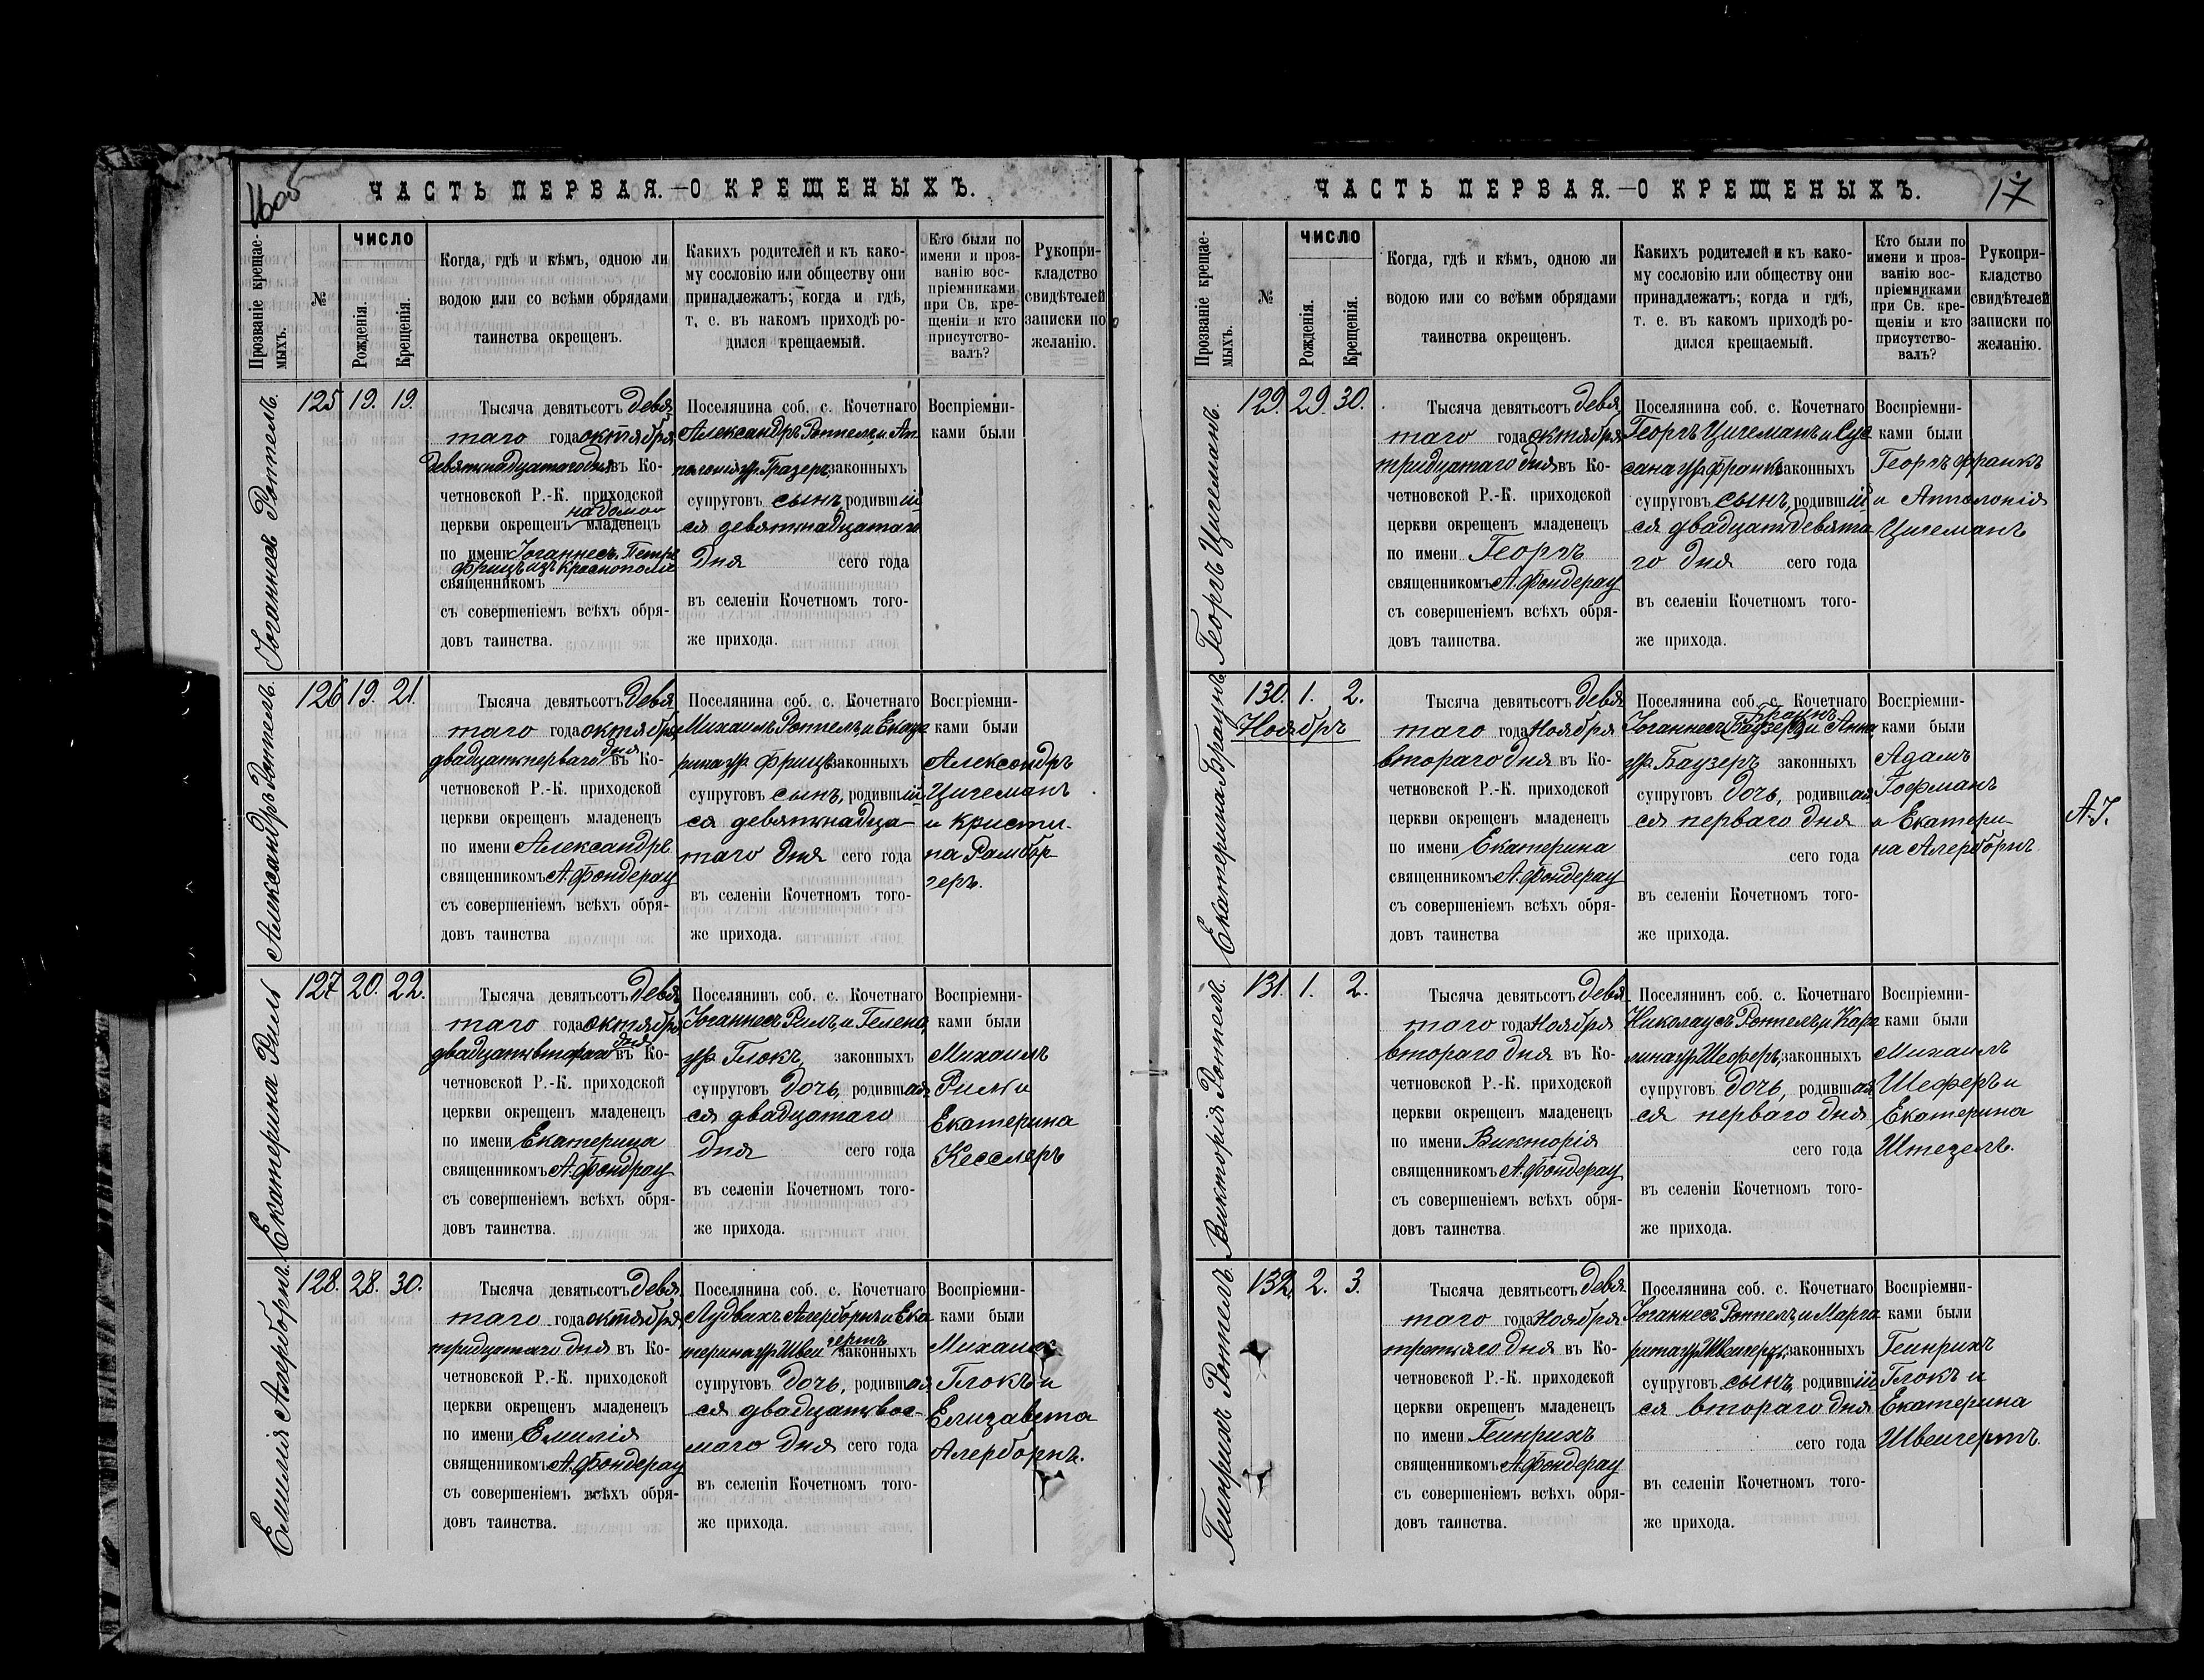 ЧАСТЬ ПЕРВАЯ.—О КРЕЩЕНЫХЪ.
Прозваніе крещае-
мыхъ.
№
ЧИСЛО
Рожденія.
Крещенія.
Когда, гдѣ и кѣмъ, одною ли
водою или со всѣми обрядами
таинства окрещенъ.
Какихъ родителей и къ како-
му сословію или обществу они
принадлежатъ; когда и гдѣ,
т. е. въ какомъ приходѣ ро-
дился крещаемый.
Кто были по
имени и проз-
ванію вос-
пріемниками
при Св. кре-
щеніи и кто
присутство-
валъ?
Рукопри-
кладство
свидѣтелей
записки по
желанію.
Іоганнес Роппель.
125 19. 19.
Тысяча девятьсотъ девя
таго года октября
девятнадцатаго дня въ Ко-
четновской Р.-К. приходской
на дому
церкви окрещенъ младенецъ
по имени Іоганнесъ. Петръ
Фрицъ изъ Краснополя
священникомъ
съ совершеніемъ всѣхъ обря-
довъ таинства.
Поселянина соб. с. Кочетнаго
Александръ Роппель, и Ап-
полонія ур. Гразеръ, законныхъ
супруговъ сынъ, родившій
ся девятнадцатаго
дня сего года
въ селеніи Кочетномъ того-
же прихода.
Воспріемни-
ками были
Александръ Роппель.
126 19. 21.
Тысяча девятьсотъ девя
таго года октября
дня
двадцать перваго въ Ко-
четновской Р.-К. приходской
церкви окрещенъ младенецъ
по имени Александръ
священникомъ А. Фондерау
съ совершеніемъ всѣхъ обря-
довъ таинства
Поселянина соб. с. Кочетнаго
Михаилъ Роппель и Екате
рина ур. Фрицъ законныхъ
супруговъ сынъ, родившій
ся девятнадца-
таго дня сего года
въ селеніи Кочетномъ того-
же прихода.
Воспріемни-
ками были
Александръ
Цигеманъ
и Кристи-
на
Екатерина Риль
127 20. 22.
Тысяча девятьсотъ девя
таго года октября
дня
двадцать втораго въ Ко-
четновской Р.-К. приходской
церкви окрещенъ младенецъ
по имени Екатерина
священникомъ А. Фондрау
съ совершеніемъ всѣхъ обря-
довъ таинства.
Поселянинъ соб. с. Кочетнаго
Іоганнесъ Риль, и Гелена,
ур. Глокъ, законныхъ
супруговъ дочь, родившая
ся двадцатаго
дня сего года
въ селеніи Кочетномъ того-
же прихода.
Воспріемни-
ками были
Михаилъ
Риль и
Екатерина
Кесслеръ
Емилія Алерборнъ.
128. 28. 30.
Тысяча девятьсотъ девя
таго года октября,
тридцатаго дня въ Ко-
четновской Р.-К. приходской
церкви окрещенъ младенецъ
по имени Емилія
священникомъ А. Фондерау
съ совершеніемъ всѣхъ обря-
довъ таинства.
Поселянина соб. с. Кочетнаго
Лудвихъ Алерборнъ и Ека
гертъ
терина ур. Швеи законныхъ
супруговъ дочь, родившая
ся двадцать вос-
маго дня сего года
въ селеніи Кочетномъ того-
же прихода.
Воспріемни-
ками были
Михаилъ
Глокъ и
Елизавета
Алерборнъ.
ЧАСТЬ ПЕРВАЯ.—О КРЕЩЕНЫХЪ.
17
Прозваніе крещае-
мыхъ.
№
ЧИСЛО
Рожденія.
Крещенія.
Когда, гдѣ и кѣмъ, одною ли
водою или со всѣми обрядами
таинства окрещенъ.
Какихъ родителей и къ како-
му сословію или обществу они
принадлежатъ; когда и гдѣ,
т. е. въ какомъ приходѣ ро-
дился крещаемый.
Кто были по
имени и проз-
ванію вос-
пріемниками
при Св. кре-
щеніи и кто
присутство-
валъ?
Рукопри-
кладство
свидѣтелей
записки по
желанію.
Георгъ Цигеманъ.
129. 29. 30.
Тысяча девятьсотъ девя
таго года октября
тридцатаго дня въ Ко-
четновской Р.-К. приходской
церкви окрещенъ младенецъ
по имени Георгъ
священникомъ А. Фондерау
съ совершеніемъ всѣхъ обря-
довъ таинства.
Поселянина соб. с. Кочетнаго
Георгъ Цигеманъ и Сус
сана ур. Франкъ законныхъ
супруговъ сынъ, родившій
ся двадцать девята
го дня сего года
въ селеніи Кочетномъ того-
же прихода.
Воспріемни-
ками были
Георгъ Франкъ
и Апполонія
Цигеманъ
Екатерина Браунъ
130. 1. 2.
Ноябрь
Тысяча девятьсотъ девя
таго года Ноября
втораго дня въ Ко-
четновской Р.-К. приходской
церкви окрещенъ младенецъ
по имени Екатерина
священникомъ А. Фондерау
съ совершеніемъ всѣхъ обря-
довъ таинства
Поселянина соб. с. Кочетнаго
Браунъ
Іоганнесъ (Баузеръ) и Анна,
ур. Баузеръ законныхъ
супруговъ дочь, родившая
ся перваго дня
сего года
въ селеніи Кочетномъ того-
же прихода.
Воспріемни-
ками были
Адамъ
Гофманъ
и Екатери-
на Алерборнъ
А. І.
Викторія Роппель.
131. 1. 2.
Тысяча девятьсотъ девя
таго года Ноября
втораго дня въ Ко-
четновской Р.-К. приходской
церкви окрещенъ младенецъ
по имени Викторія
священникомъ А. Фондерау
съ совершеніемъ всѣхъ обря-
довъ таинства
Поселянинъ соб. с. Кочетнаго
Николаусъ Роппель и Каро
лина ур. Шеферъ, законныхъ
супруговъ дочь, родившая
ся перваго дня
сего года
въ селеніи Кочетномъ того-
же прихода.
Воспріемни-
ками были
Михаилъ
Шеферъ и
Екатерина
Штезель.
Геинрихъ Роппель.
132. 2. 3.
Тысяча девятьсотъ девя
таго года Ноября
третьяго дня въ Ко-
четновской Р.-К. приходской
церкви окрещенъ младенецъ
по имени Геинрихъ
священникомъ А. Фондерау
съ совершеніемъ всѣхъ обря-
довъ таинства.
Поселянина соб. с. Кочетнаго
Іоганнесъ Роппель, и Марга
рита ур. законныхъ
супруговъ сынъ, родившій
ся втораго дня
сего года
въ селеніи Кочетномъ того-
же прихода.
Воспріемни-
ками были
Геинрихъ
Глокъ и
Екатерина
Швеигертъ.